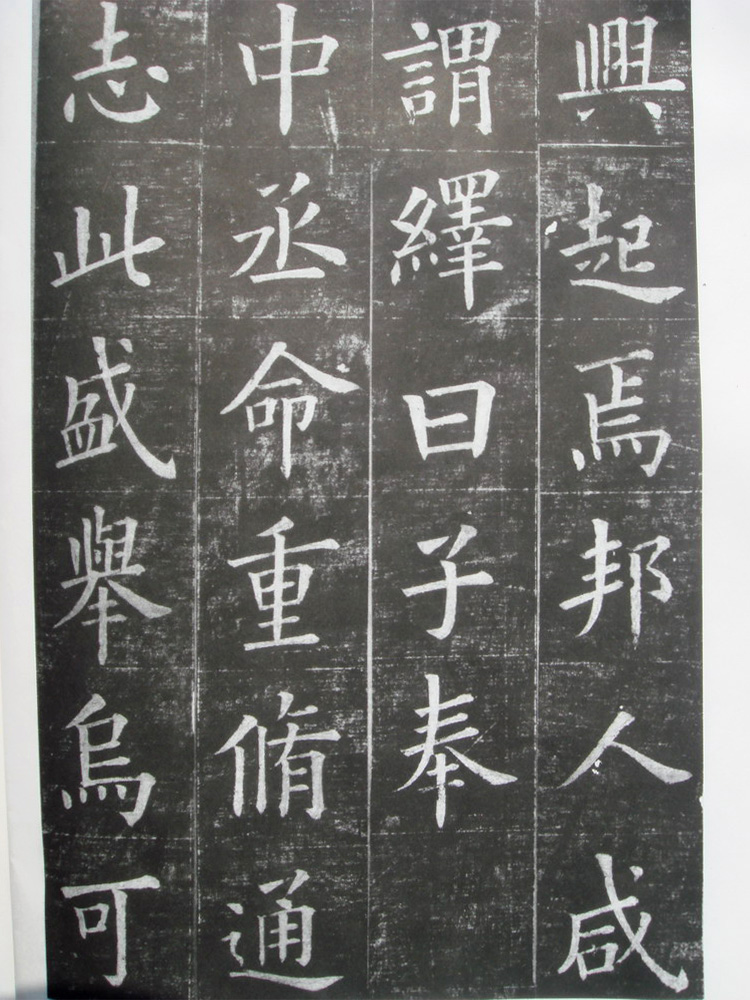 興起焉邦人咸
謂繹曰子奉
中丞命重脩通
志此盛舉烏可